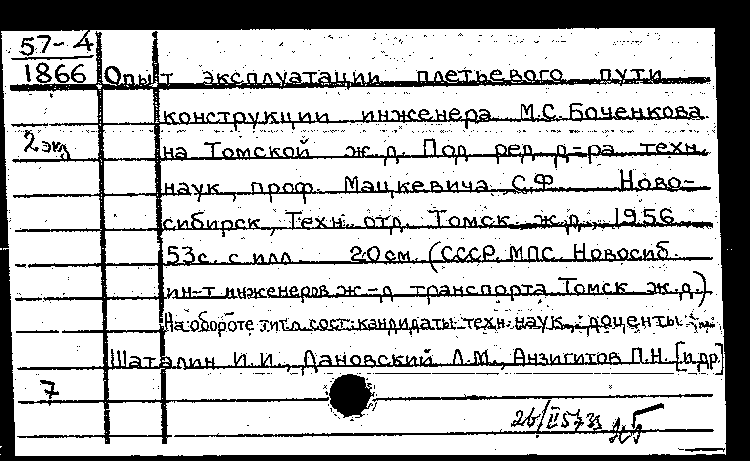 57-4
1866 Опыт эксплуатации плетьевого пути
конструкции инженера М.С. Боченкова
2 экз на Томской ж.д. Под ред. д-ра техн.
наук, проф. Мацкевича С.Ф. Ново-
сибирск, Техн. отд. Томск. ж.д., 1956
53с. с илл. 20 см. (СССР. МПС. Новосиб.
ин-т инженеров ж-д транспорта Томск. ж.д.)
На обороте тит.л. сост.: кандидаты техн. наук, доценты
Шаталин И.И., Дановский Л.М., Анзигитов П.Н. [и др.]
7
26/II 57